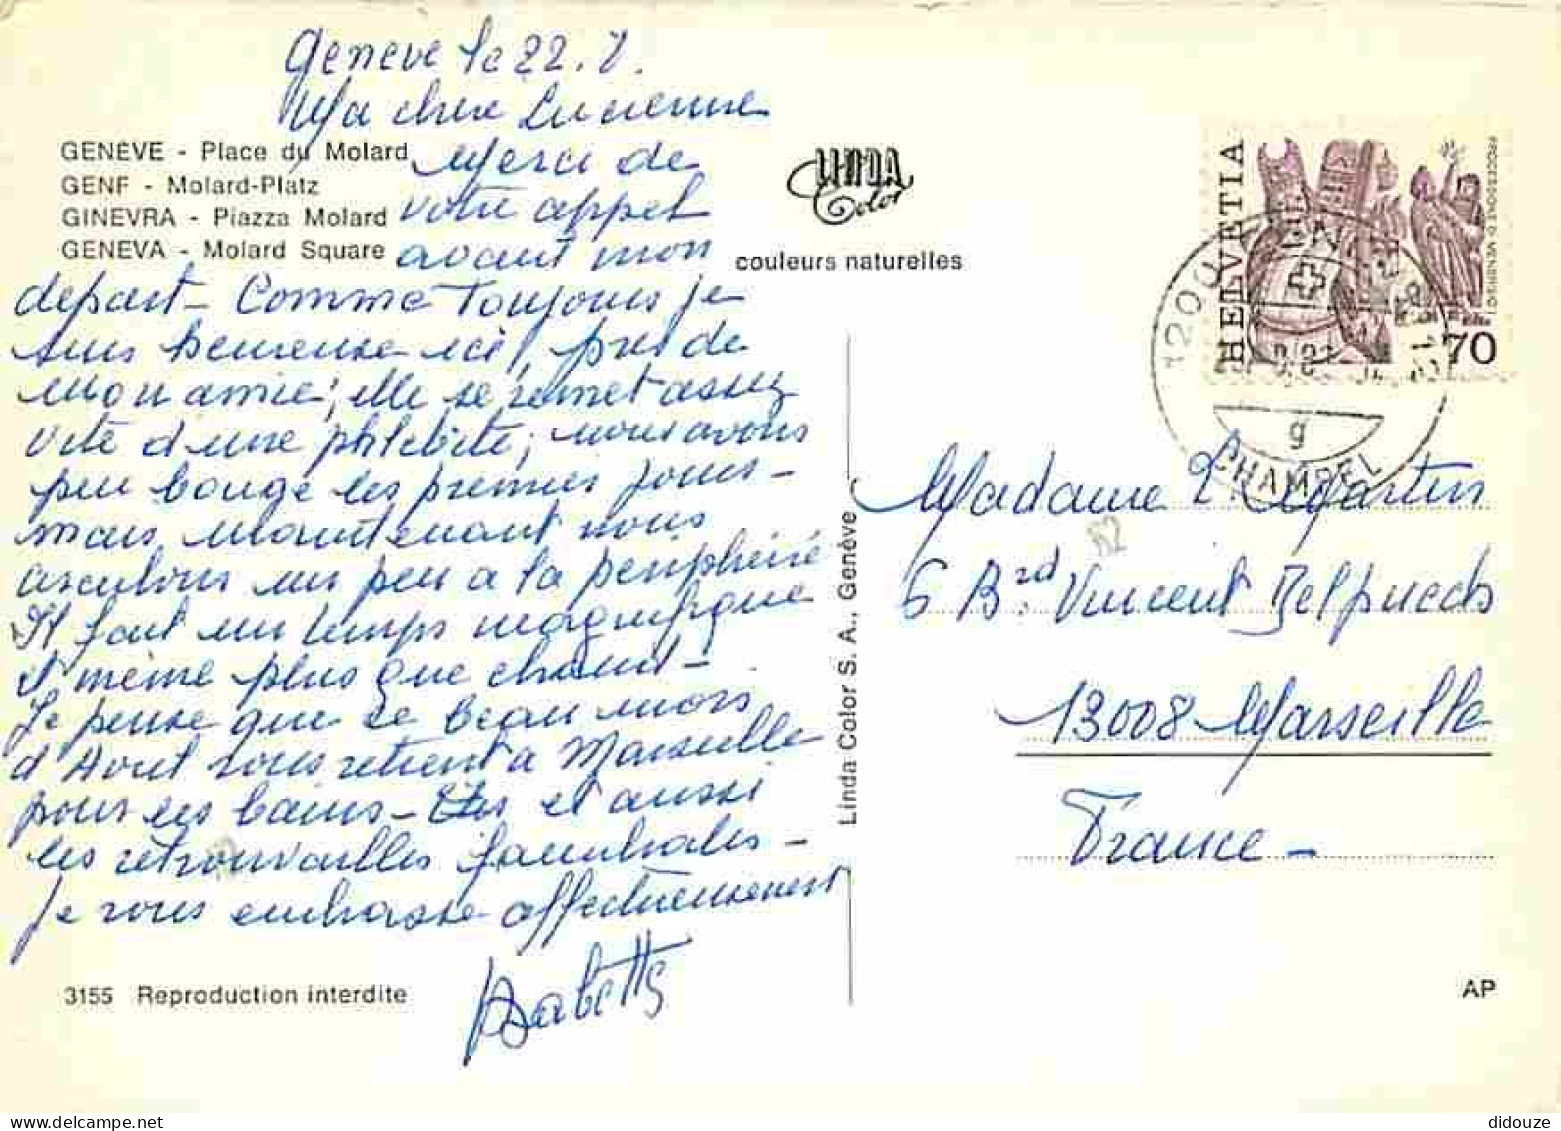 Genève le 22.7.
Ma chère Lucienne
GENÈVE - Place du Molard
GENF - Molard-Platz
GINEVRA - Piazza Molard
GENEVA - Molard Square
Merci de
votre appel
avant mon
départ - Comme Toujours je
suis heureuse ici, près de
mon amie; elle se remet assez
vite d'une phlébite; nous avons
peu bougé les premiers jours -
mais maintenant nous
un peu à la
Il fait un temps magnifique
et même plus que chaud -
Je pense que ce beau mois
d'Août vous retient à Marseille
pour les bains - et aussi
les retrouvailles familiales -
Je vous embrasse affectueusement
Babette
3155 Reproduction interdite
LINDA
Color
couleurs naturelles
Linda Color S. A., Genève
HELVETIA
70
1200
g
CHAMPEL
Madame L. Martin
6 Bd Vincent Delpuech
13008 Marseille
France -
AP
didouze